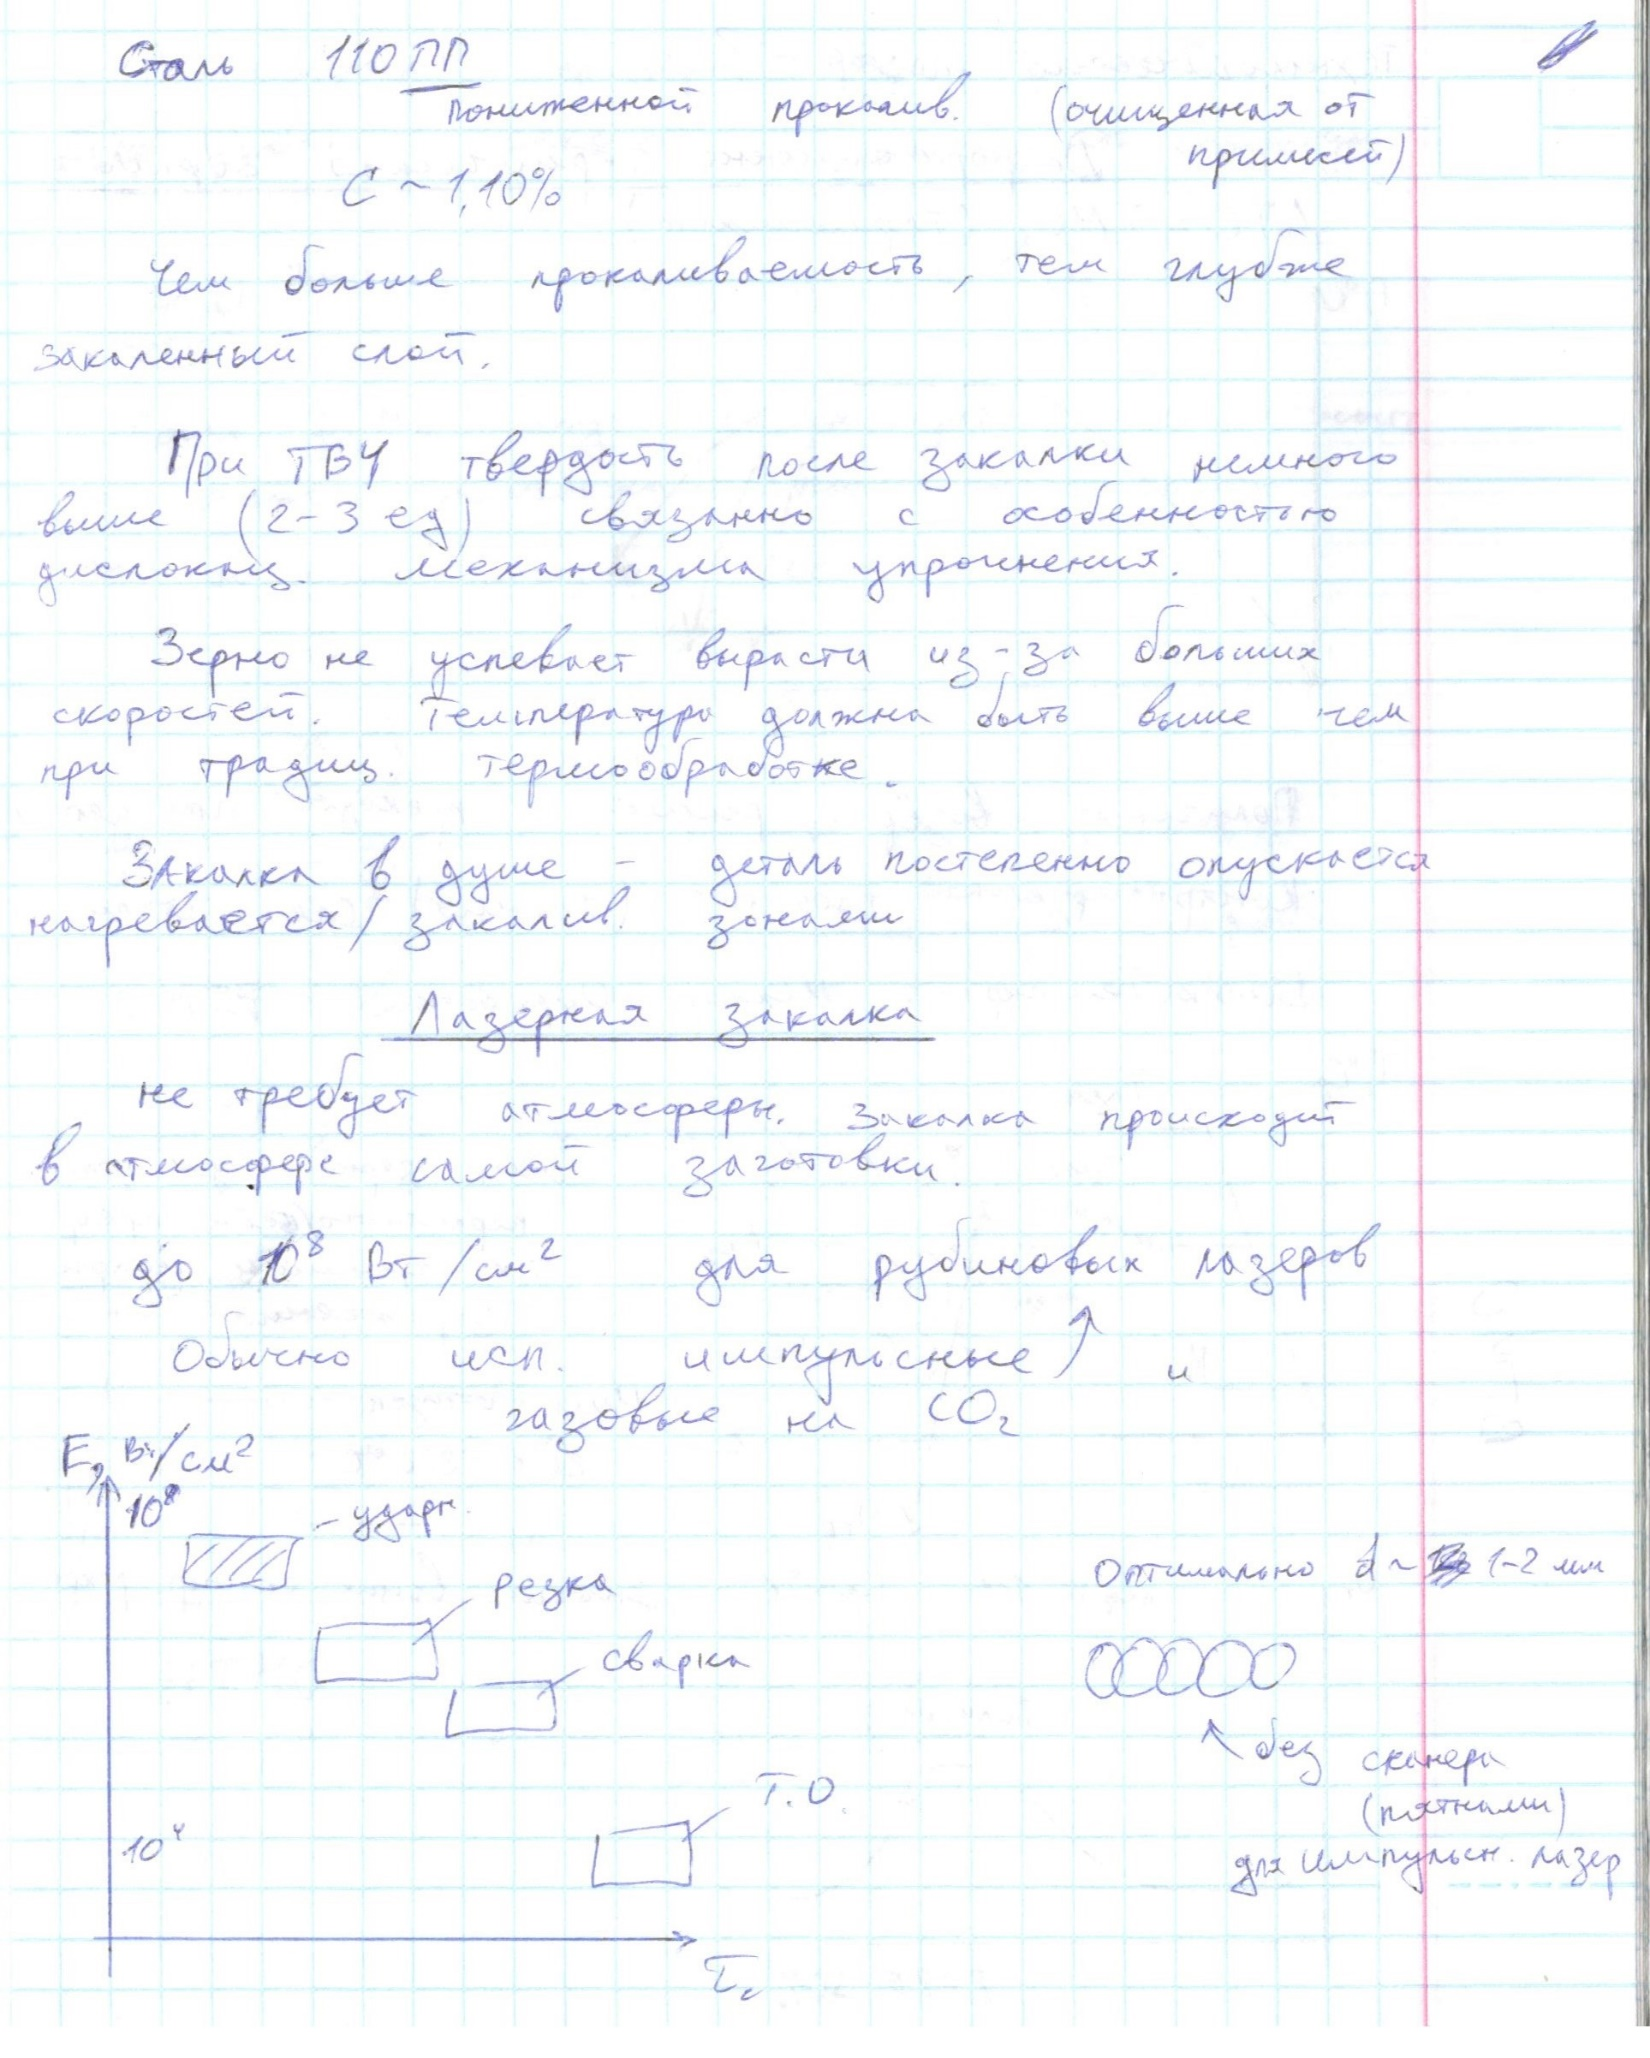 Сталь 110ПП
пониженной прокалив. (очищенная от
примесей)
С ~ 1,10%
Чем больше прокаливаемость, тем глубже
закаленный слой.
При ТВЧ твердость после закалки немного
выше (2-3 ед) связанно с особенностью
дислокац. механизма упрочнения.
Зерно не успевает вырасти из-за больших
скоростей. Температура должна быть выше чем
при традиц. термообработке.
Закалка в душе - деталь постепенно опускается
нагревается/закалив. зонами
Лазерная закалка
не требует атмосферы. Закалка происходит
в атмосфере самой заготовки.
до 10⁸ Вт/см² для рубиновых лазеров
Обычно исп. импульсные и
газовые на CO₂
E, Вт/см²
10⁸
- ударн.
резка
Оптимально d ~ 1-2 мм
сварка
без сканера
Т.О.
(пятнами)
10⁴
для импульсн. лазер
τ, c